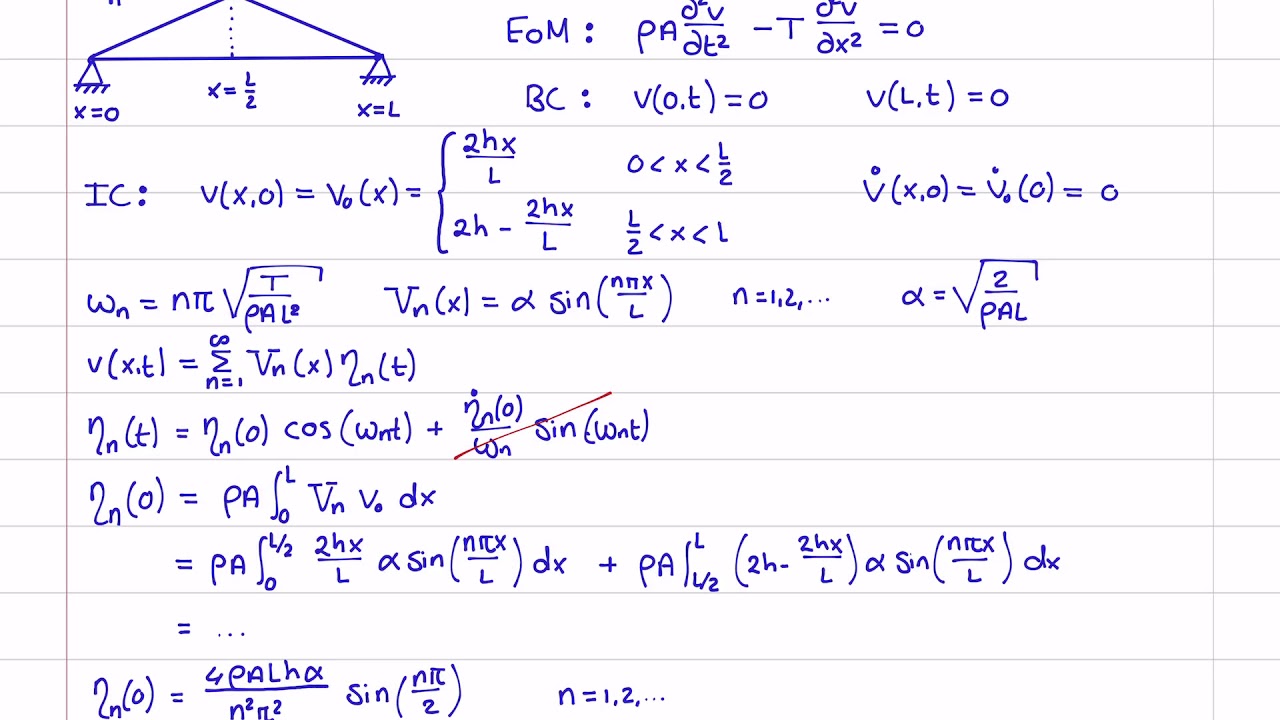 h
EoM : ρA ∂²v/∂t² - T ∂²v/∂x² = 0
x=0 x=L/2 x=L
BC : v(0,t) = 0 v(L,t) = 0
IC: v(x,0) = v₀(x) = { 2hx/L 0 < x < L/2
2h - 2hx/L L/2 < x < L
v̇(x,0) = v̇₀(0) = 0
ωn = nπ √(T/ρAL²) Vn(x) = α sin(nπx/L) n=1,2,... α = √(2/ρAL)
v(x,t) = ∑_{n=1}^{∞} Vn(x) ηn(t)
ηn(t) = ηn(0) cos(ωnt) + η̇n(0)/ωn sin(ωnt)
ηn(0) = ρA ∫₀^L Vn v₀ dx
= ρA ∫₀^{L/2} 2hx/L α sin(nπx/L) dx + ρA ∫_{L/2}^L (2h - 2hx/L) α sin(nπx/L) dx
= ...
ηn(0) = 4ρALhα/n²π² sin(nπ/2) n=1,2,...